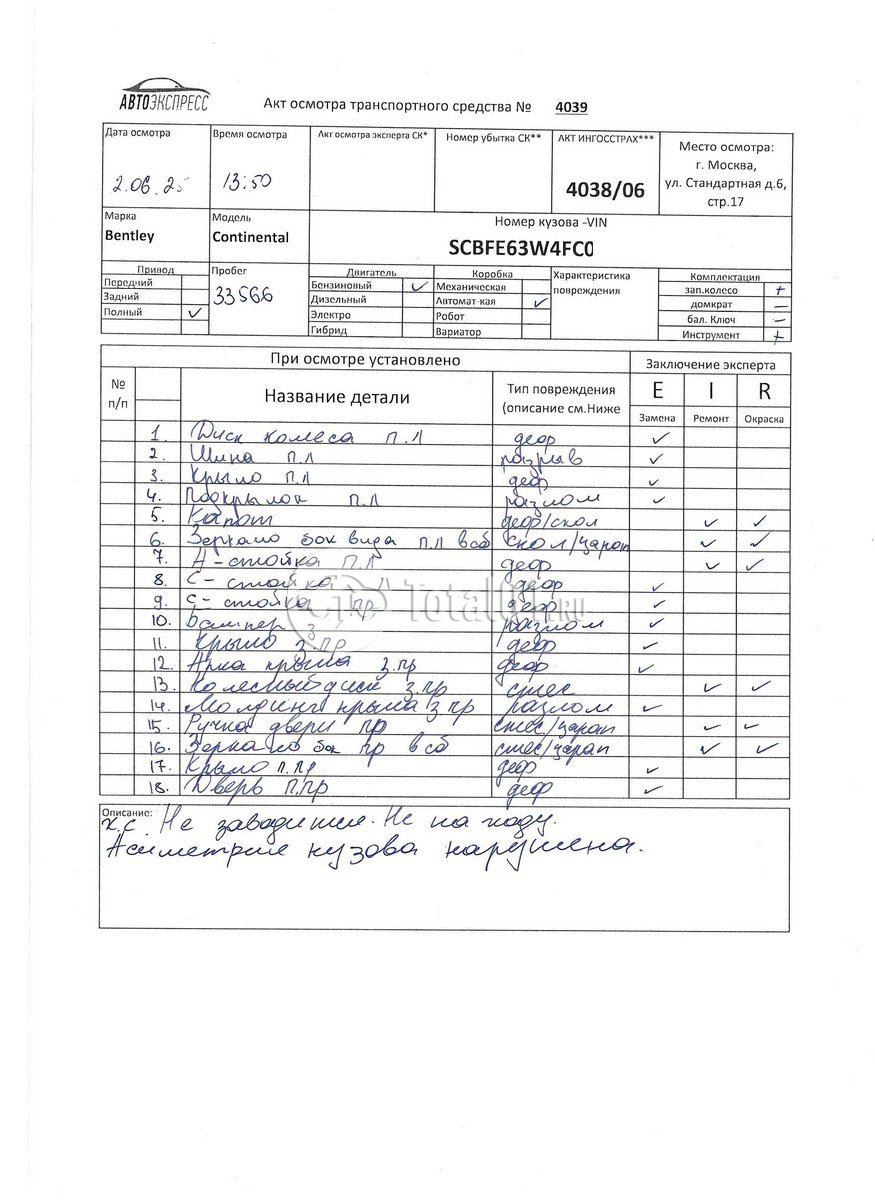 АВТОЭКСПРЕСС
Акт осмотра транспортного средства № 4039
Дата осмотра
2.06.25
Время осмотра
13:50
Акт осмотра эксперта СК*
Номер убытка СК**
АКТ ИНГОССТРАХ***
4038/06
Место осмотра:
г. Москва,
ул. Стандартная д.6,
стр.17
Марка
Bentley
Модель
Continental
Номер кузова -VIN
SCBFE63W4FC0
Привод
Передний
Задний
Полный ✓
Пробег
33566
Двигатель
Бензиновый ✓
Дизельный
Электро
Гибрид
Коробка
Механическая
Автомат-кая ✓
Робот
Вариатор
Характеристика
повреждения
Комплектация
зап.колесо +
домкрат —
бал. Ключ —
Инструмент +
При осмотре установлено
Заключение эксперта
№
п/п
Название детали
Тип повреждения
(описание см.Ниже
E I R
Замена Ремонт Окраска
1. Диск колеса п.л деф ✓
2. Шина п.л разрыв ✓
3. Крыло п.л деф ✓
4. Подкрылок п.л разлом ✓
5. Капот деф/скол ✓ ✓
6. Зеркало бок вида п.л в сб скол/царап ✓ ✓
7. А-стойка п.л деф ✓ ✓
8. С-стойка л деф ✓
9. С-стойка пр деф ✓
10. Бампер з разлом ✓
11. Крыло з.пр деф ✓
12. Арка крыла з.пр деф ✓
13. Колесный диск з.пр стес ✓ ✓
14. Молдинг крыла з пр разлом ✓
15. Ручка двери пр стес/царап ✓ ✓
16. Зеркало бок пр в сб стес/царап ✓ ✓
17. Крыло п.пр деф ✓
18. Дверь п.пр деф ✓
Total01.RU
Описание:
х.с. Не заводится. Не на ходу.
Асиметрие кузова нарушена.